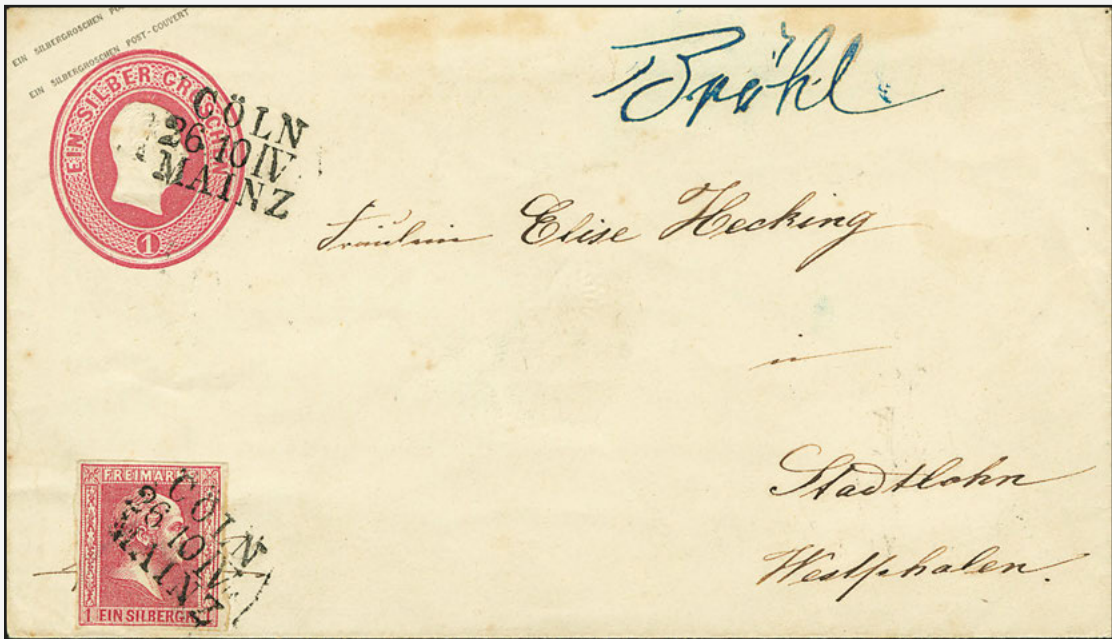 EIN SILBERGROSCHEN
EIN SILBERGROSCHEN POST-COUVERT
EIN SILBER GROSCHEN
1
CÖLN
26 10 IV
MAINZ
Brühl
Fräulein Elise Hecking
in
Stadtlohn
Westphalen.
FREIMARKE
CÖLN
26 10 IV
MAINZ
1 EIN SILBERGR